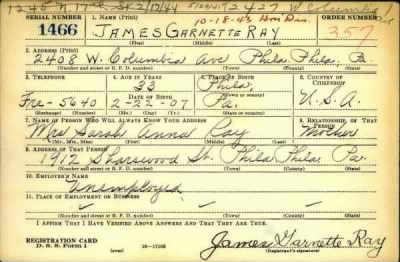 1245 N 17th St 2/12/44 2427 W Columbia Ave
SERIAL NUMBER 1. NAME (Print) 10-18-43 Hon Dis. ORDER NUMBER
1466 JAMES GARNETTE RAY 357
(First) (Middle) (Last)
2. ADDRESS (Print)
2408 W. Columbia Ave Phila. Phila. Pa.
(Number and street or R. F. D. number) (Town) (County) (State)
3. TELEPHONE 4. AGE IN YEARS 5. PLACE OF BIRTH 6. COUNTRY OF CITIZENSHIP
33 Phila.
DATE OF BIRTH (Town or county)
Fre-5640 2-22-07 Pa. U.S.A.
(Exchange) (Number) (Mo.) (Day) (Yr.) (State or country)
7. NAME OF PERSON WHO WILL ALWAYS KNOW YOUR ADDRESS 8. RELATIONSHIP OF THAT PERSON
Mrs Sarah Anna Ray Mother
(Mr., Mrs., Miss) (First) (Middle) (Last)
9. ADDRESS OF THAT PERSON
1912 Sharswood St. Phila Phila Pa.
(Number and street or R. F. D. number) (Town) (County) (State)
10. EMPLOYER'S NAME
Unemployed
11. PLACE OF EMPLOYMENT OR BUSINESS
(Number and street or R. F. D. number) (Town) (County) (State)
I AFFIRM THAT I HAVE VERIFIED ABOVE ANSWERS AND THAT THEY ARE TRUE.
REGISTRATION CARD
D. S. S. Form 1 (over) 16-17105 James Garnette Ray
(Registrant's signature)